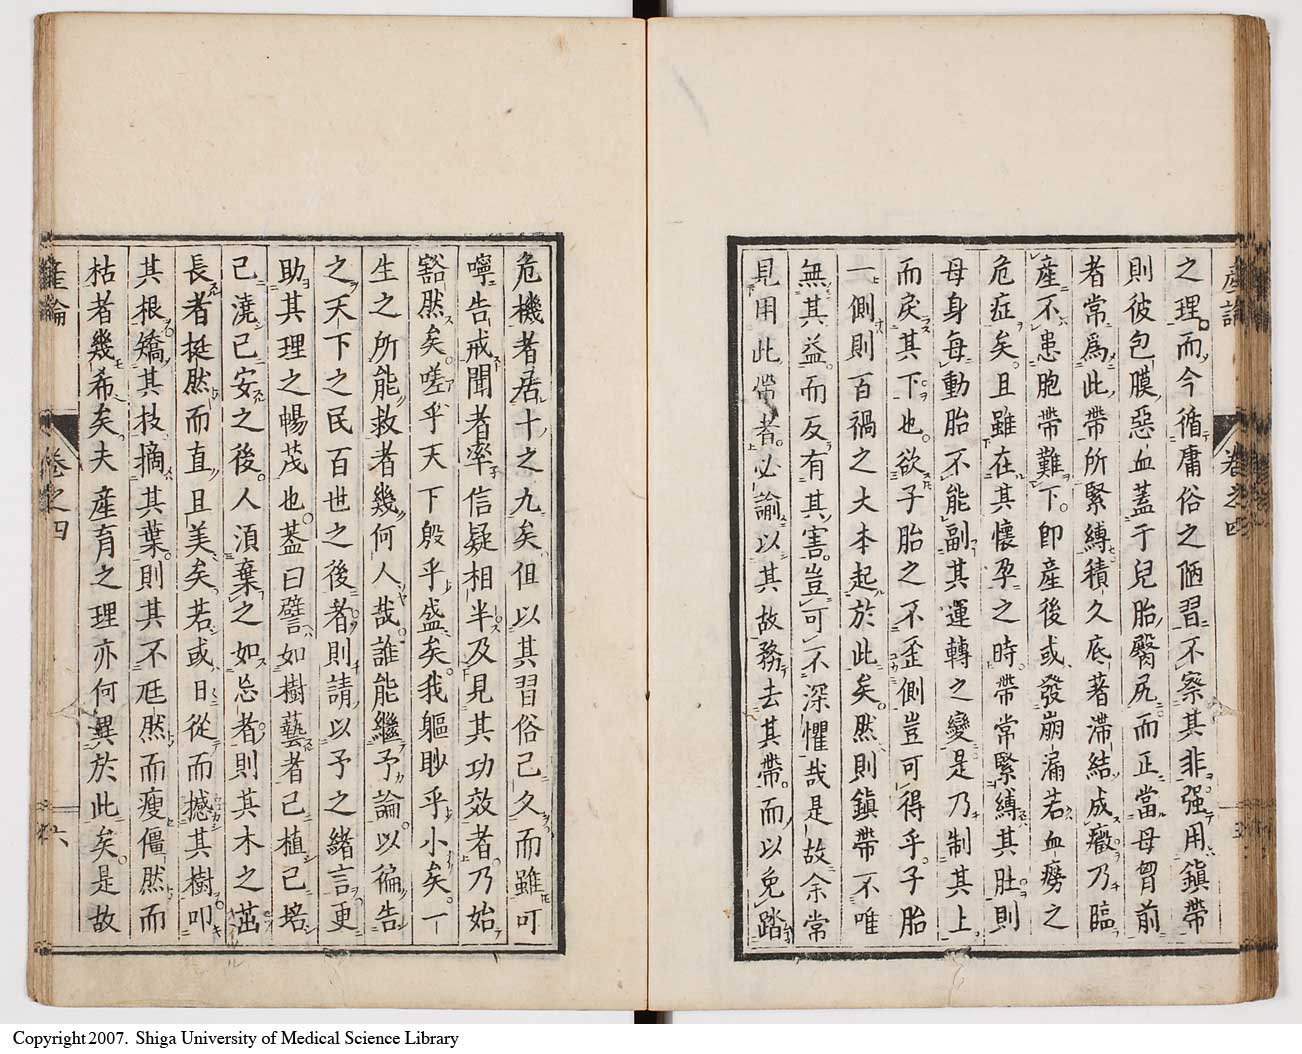 産論
卷之四
之理而今循庸俗之陋習不察其非强用鎭帶
則彼包膜惡血蓋于兒胎臀尻而正當母胷前
者常爲此帶所緊縛積久底著滯結成癥乃臨
産不患胞帶難下即産後或發崩漏若血癆之
危症矣且雖在其懷孕之時帶常緊縛其肚則
母身每動胎不能副其運轉之變是乃制其上
而戾其下也欲子胎之不歪側豈可得乎子胎
一側則百禍之大本起於此矣然則鎭帶不唯
無其益而反有其害豈可不深懼哉是故余常
見用此帶者必諭以其故務去其帶而以免踏
危機者居十之九矣但以其習俗已久而雖可
嚀告戒聞者率信疑相半及見其功效者乃始
豁然矣嗟乎天下殷乎盛矣我軀眇乎小矣一
生之所能救者幾何人哉誰能繼予論以徧告
之天下之民百世之後者則請以予之緒言更
助其理之暢茂也蓋曰譬如樹藝者已植已培
已澆已安之後人須棄之如忘者則其木之茁
長者挺然而直且美矣若或日從而撼其樹叩
其根矯其枝摘其葉則其不尫然而瘦僵然而
枯者幾希矣夫產育之理亦何異於此矣是故
産論
卷之四
六
Copyright 2007. Shiga University of Medical Science Library